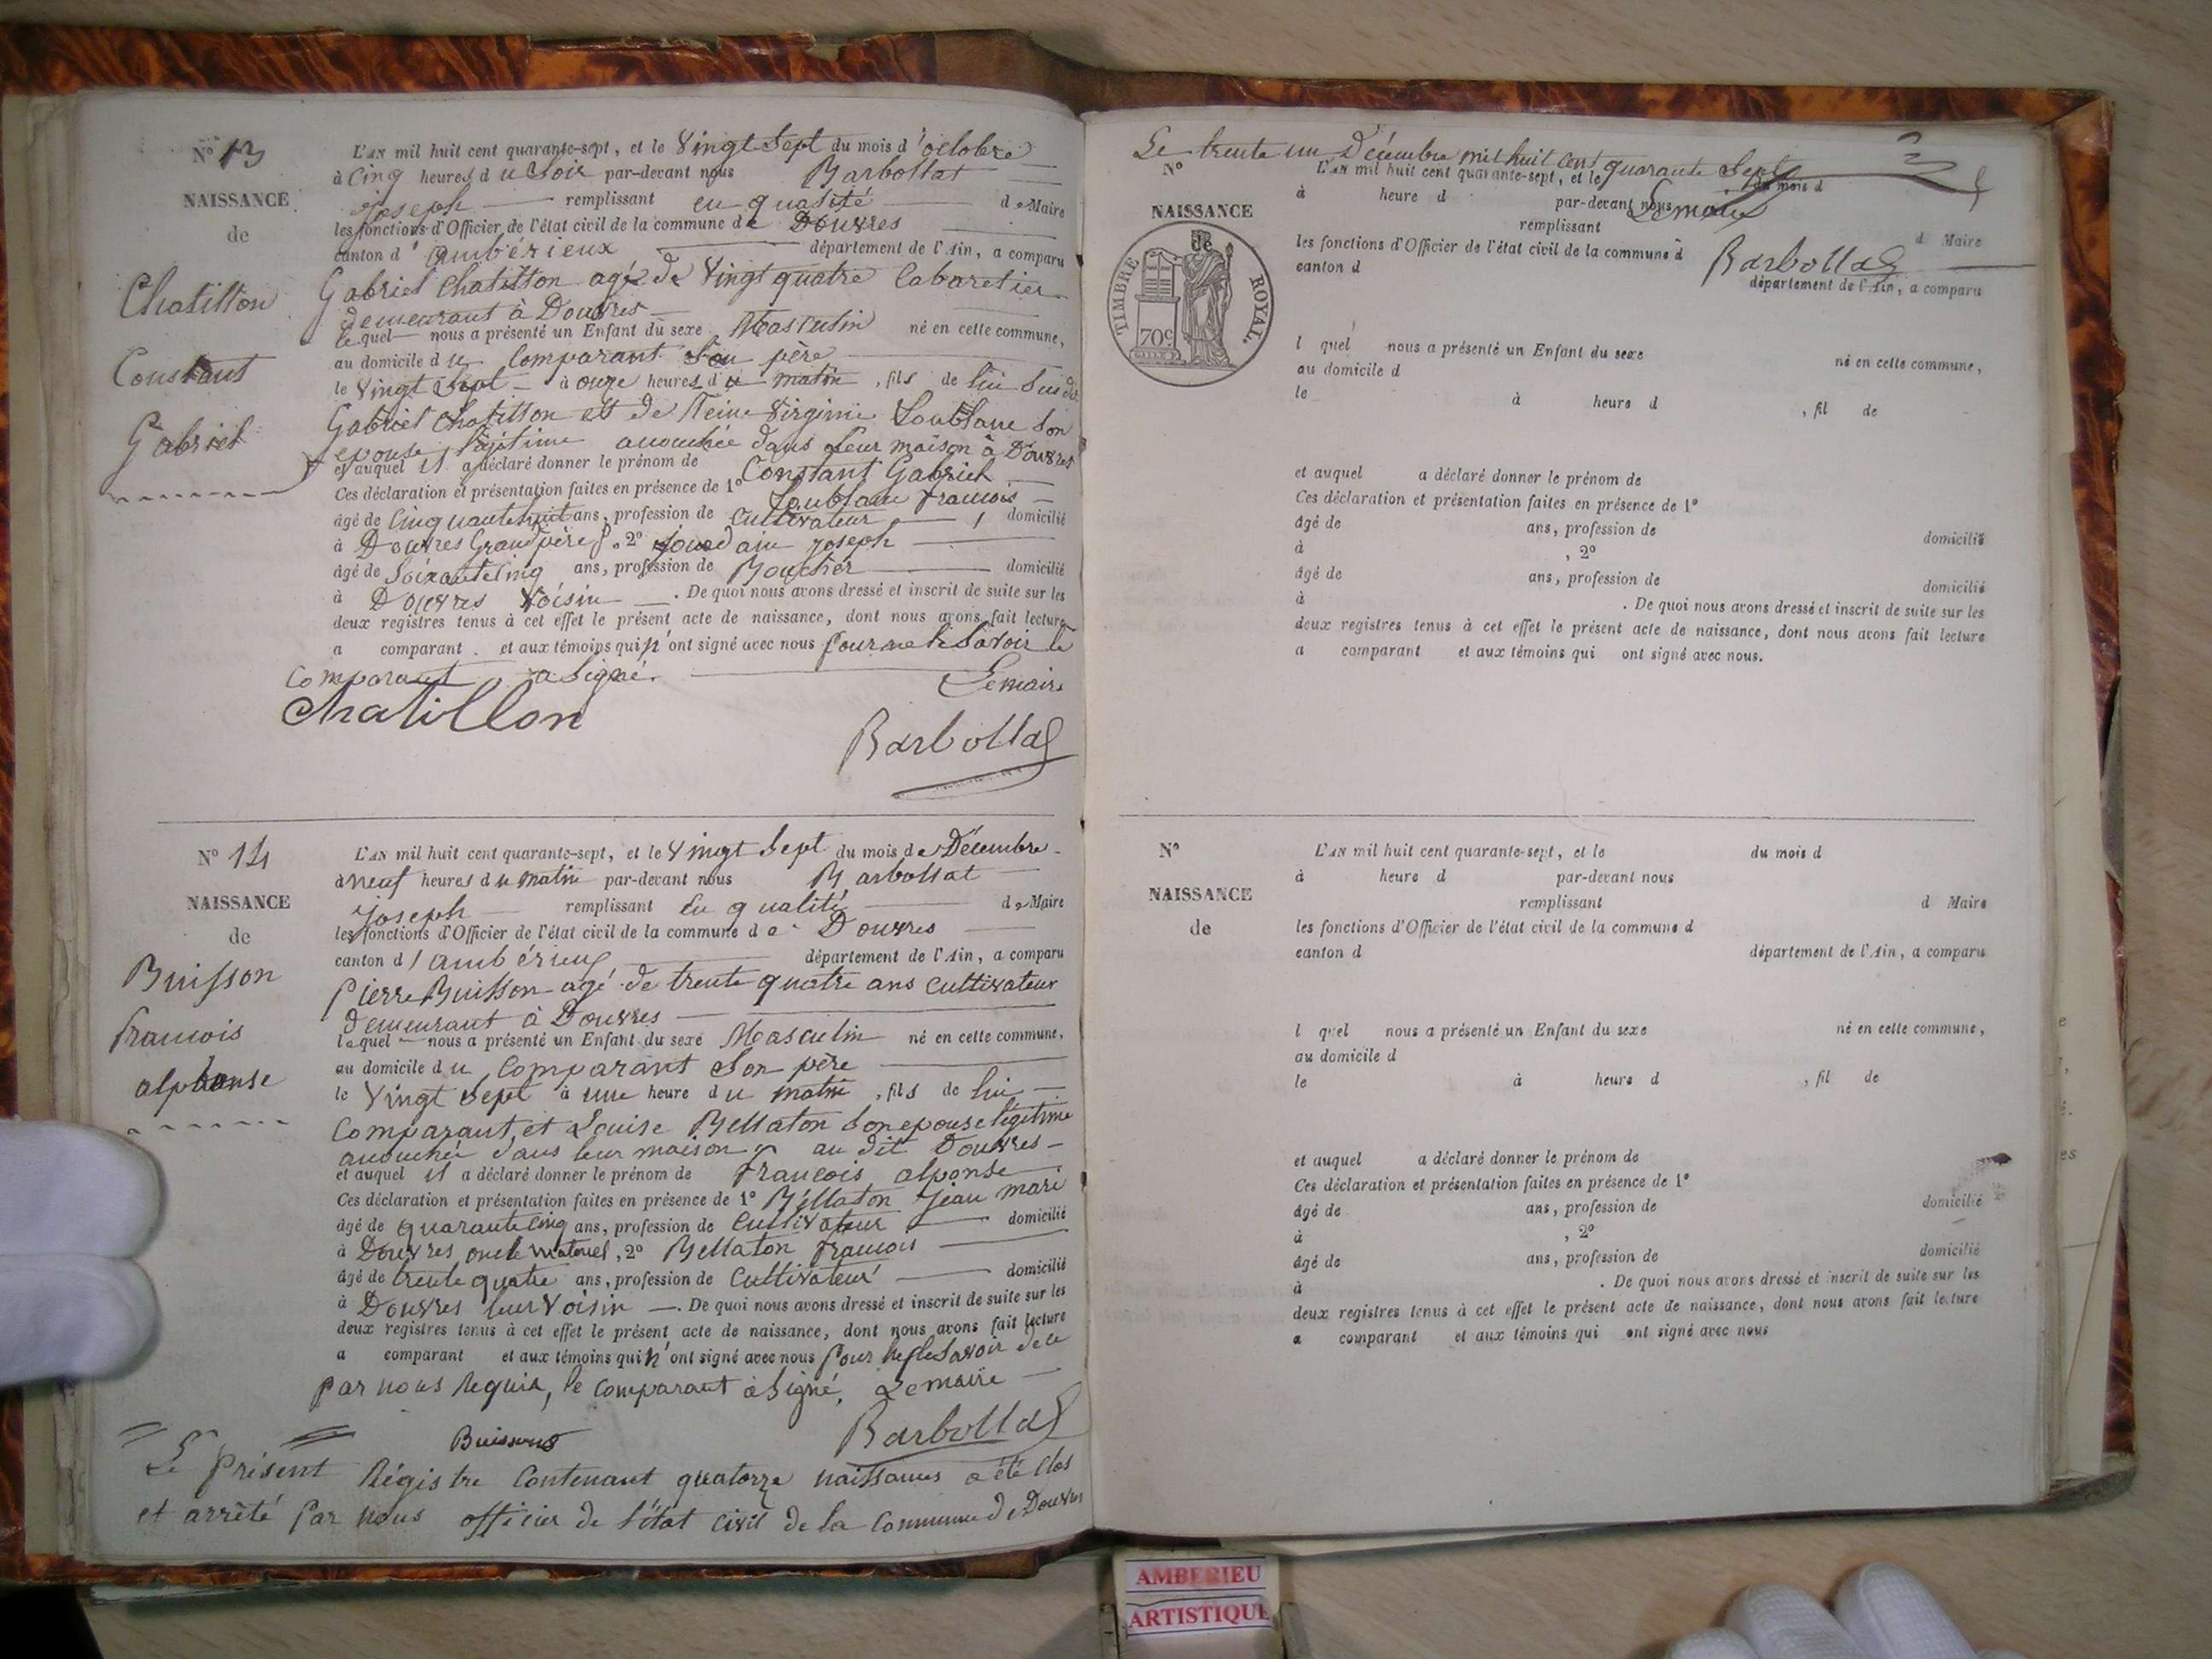 N° 13
NAISSANCE
de
Chatillon
Constant
Gabriel
L'AN mil huit cent quarante-sept, et le Vingt Sept du mois d'octobre
à Cinq heures du Soir par-devant nous Barbollat
joseph remplissant en qualité de Maire
les fonctions d'Officier de l'état civil de la commune de Douvres
canton d'ambérieux département de l'Ain, a comparu
Gabriel Chatillon agé de Vingt quatre Cabaretier
demeurant à Douvres
lequel nous a présenté un Enfant du sexe Masculin né en cette commune,
au domicile du Comparant Son père
le Vingt Sept à onze heures du matin, fils de lui Susdit
Gabriel Chatillon et de Reine Virginie Loublane Son
epouse légitime accouchée dans leur maison à Douvres
et auquel il a déclaré donner le prénom de Constant Gabriel
Ces déclaration et présentation faites en présence de 1° Loublane francois
âgé de Cinquante huit ans, profession de Cultivateur, domicilié
à Douvres Grand père, 2° jourdain joseph
âgé de Soixante Cinq ans, profession de Boucher domicilié
à Douvres Voisin. De quoi nous avons dressé et inscrit de suite sur les
deux registres tenus à cet effet le présent acte de naissance, dont nous avons fait lecture
a comparant. et aux témoins qui n'ont signé avec nous pour ne le Savoir le
Comparant a Signé. Le maire
Chatillon
Barbollat
N° 14
NAISSANCE
de
Buisson
francois
alphonse
L'AN mil huit cent quarante-sept, et le Vingt Sept du mois de Décembre
à neuf heures du matin par-devant nous Barbollat
joseph remplissant En qualité de Maire
les fonctions d'Officier de l'état civil de la commune de Douvres
canton d'ambérieux département de l'Ain, a comparu
pierre Buisson agé de trente quatre ans cultivateur
demeurant à Douvres
lequel nous a présenté un Enfant du sexe Masculin né en cette commune,
au domicile du Comparant Son père
le Vingt Sept à une heure du matin, fils de lui
Comparant et Louise Bellaton Son epouse légitime
accouchée dans leur maison au dit Douvres
et auquel il a déclaré donner le prénom de francois alponse
Ces déclaration et présentation faites en présence de 1° Béllaton Jean mari
âgé de quarante Cinq ans, profession de Cultivateur domicilié
à Douvres oncle maternel, 2° Bellaton francois
âgé de trente quatre ans, profession de Cultivateur domicilié
à Douvres leur Voisin. De quoi nous avons dressé et inscrit de suite sur les
deux registres tenus à cet effet le présent acte de naissance, dont nous avons fait lecture
a comparant et aux témoins qui n'ont signé avec nous pour Savoir de ce
par nous Requis, le Comparant a Signé, Le maire
Buisson
Barbollat
Le présent Régistre Contenant quatorze naissances a été clos
et arrêté par nous officier de l'état civil de la Commune de Douvres
Le trente un Décembre mil huit cent quarante Sept
Le maire
Barbollat
N°
NAISSANCE
de
TIMBRE ROYAL.
70c
L'AN mil huit cent quarante-sept, et le du mois d
à heure d par-devant nous
remplissant d Maire
les fonctions d'Officier de l'état civil de la commune d
canton d département de l'Ain, a comparu
l quel nous a présenté un Enfant du sexe né en cette commune,
au domicile d
le à heure d , fil de
et auquel a déclaré donner le prénom de
Ces déclaration et présentation faites en présence de 1°
âgé de ans, profession de domicilié
à , 2°
âgé de ans, profession de domicilié
à . De quoi nous avons dressé et inscrit de suite sur les
deux registres tenus à cet effet le présent acte de naissance, dont nous avons fait lecture
a comparant et aux témoins qui ont signé avec nous.
N°
NAISSANCE
de
L'AN mil huit cent quarante-sept, et le du mois d
à heure d par-devant nous
remplissant d Maire
les fonctions d'Officier de l'état civil de la commune d
canton d département de l'Ain, a comparu
l quel nous a présenté un Enfant du sexe né en cette commune,
au domicile d
le à heure d , fil de
et auquel a déclaré donner le prénom de
Ces déclaration et présentation faites en présence de 1°
âgé de ans, profession de domicilié
à , 2°
âgé de ans, profession de domicilié
à . De quoi nous avons dressé et inscrit de suite sur les
deux registres tenus à cet effet le présent acte de naissance, dont nous avons fait lecture
a comparant et aux témoins qui ont signé avec nous
AMBERIEU
ARTISTIQUE